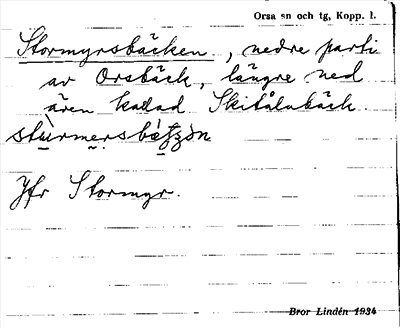 Orsa sn och tg, Kopp. l.
Stormyrsbäcken, nedre parti
av Orsbäck, längre ned
även kallad Skitålnbäck.
Jfr Stormyr.
Bror Lindén 1934